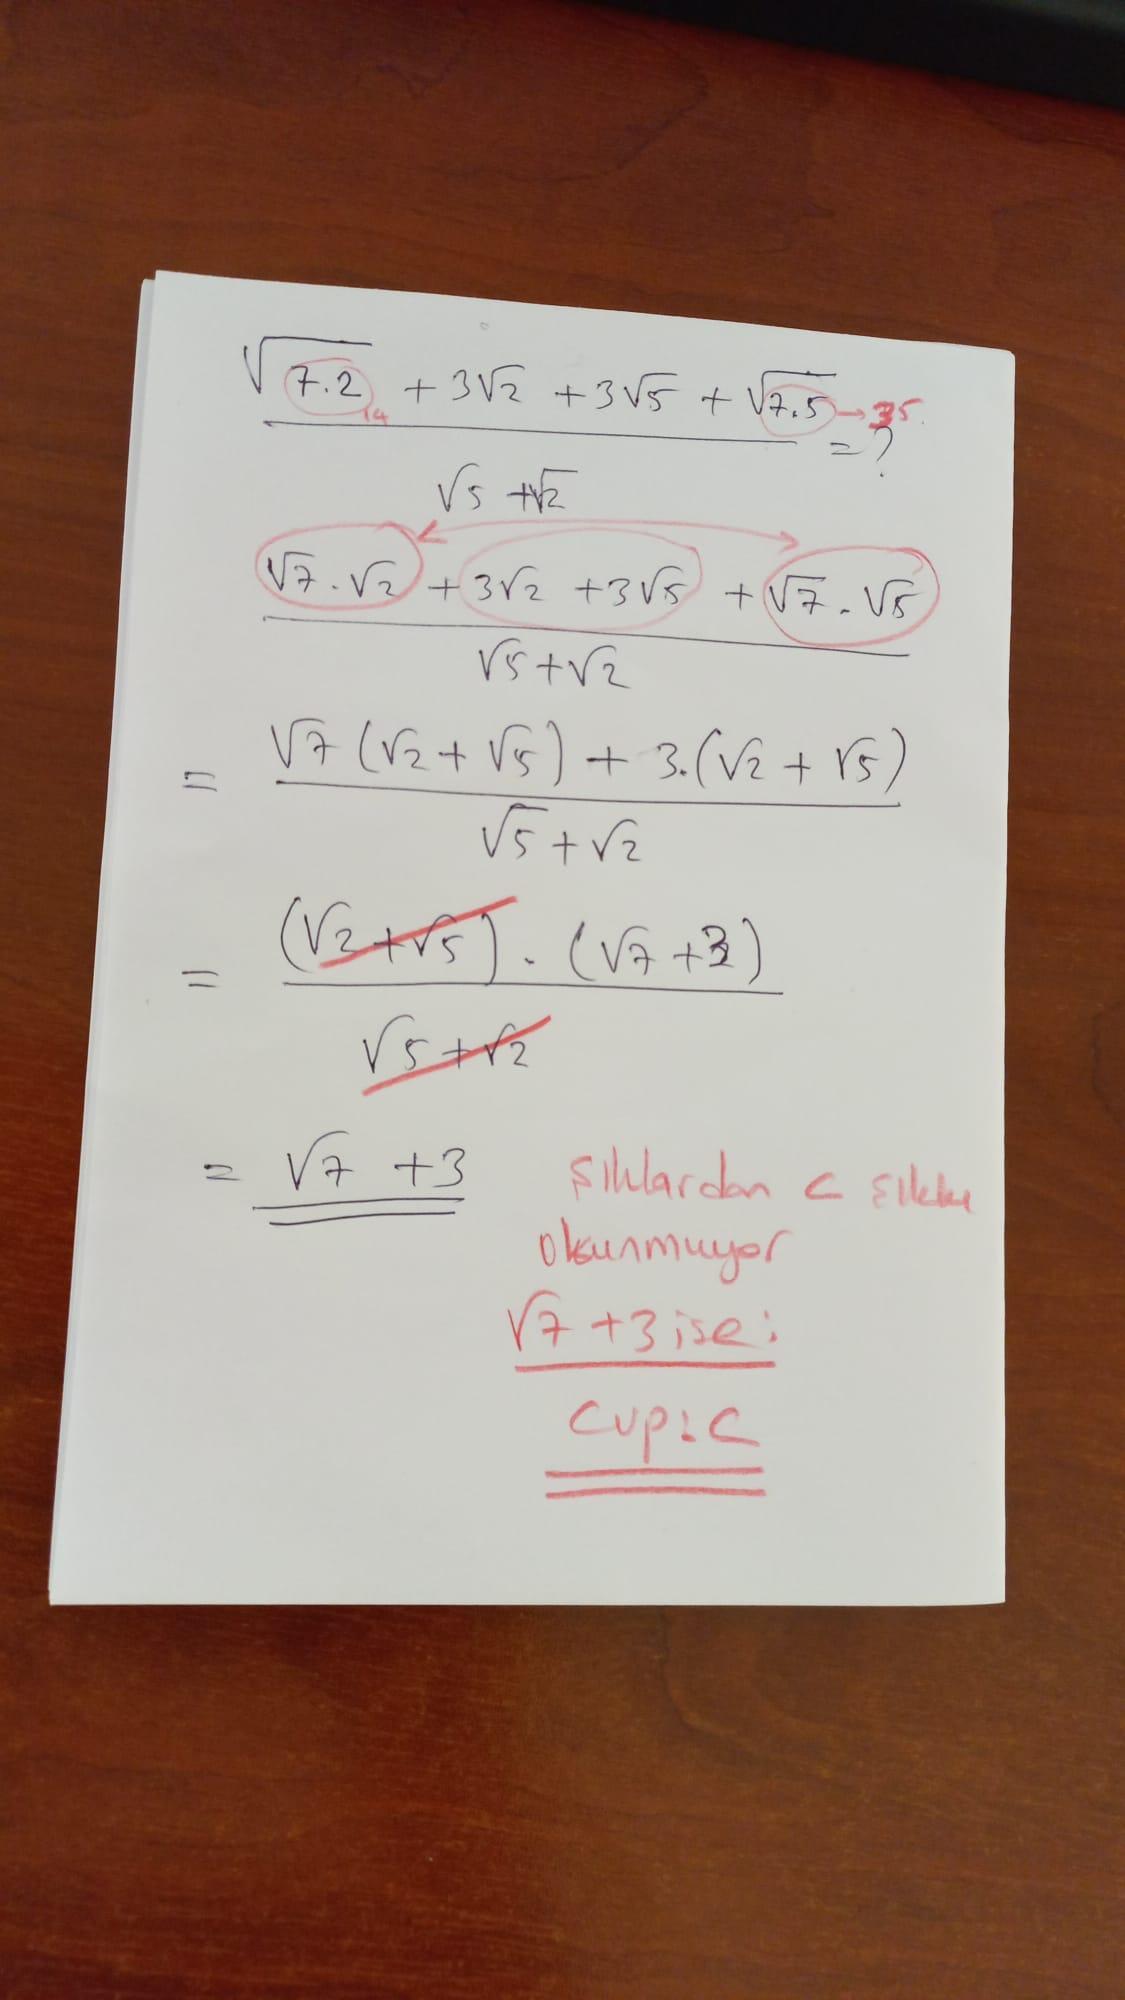 √7.2 + 3√2 + 3√5 + √7.5 → 35
14
= ?
√5 + √2
√7 . √2 + 3√2 + 3√5 + √7 . √5
√5 + √2
= √7 (√2 + √5) + 3.(√2 + √5)
√5 + √2
= (√2 + √5) . (√7 + 3)
√5 + √2
= √7 + 3
Şıklardan C şıkkı
okunmuyor
√7 + 3 ise:
Cvp: C